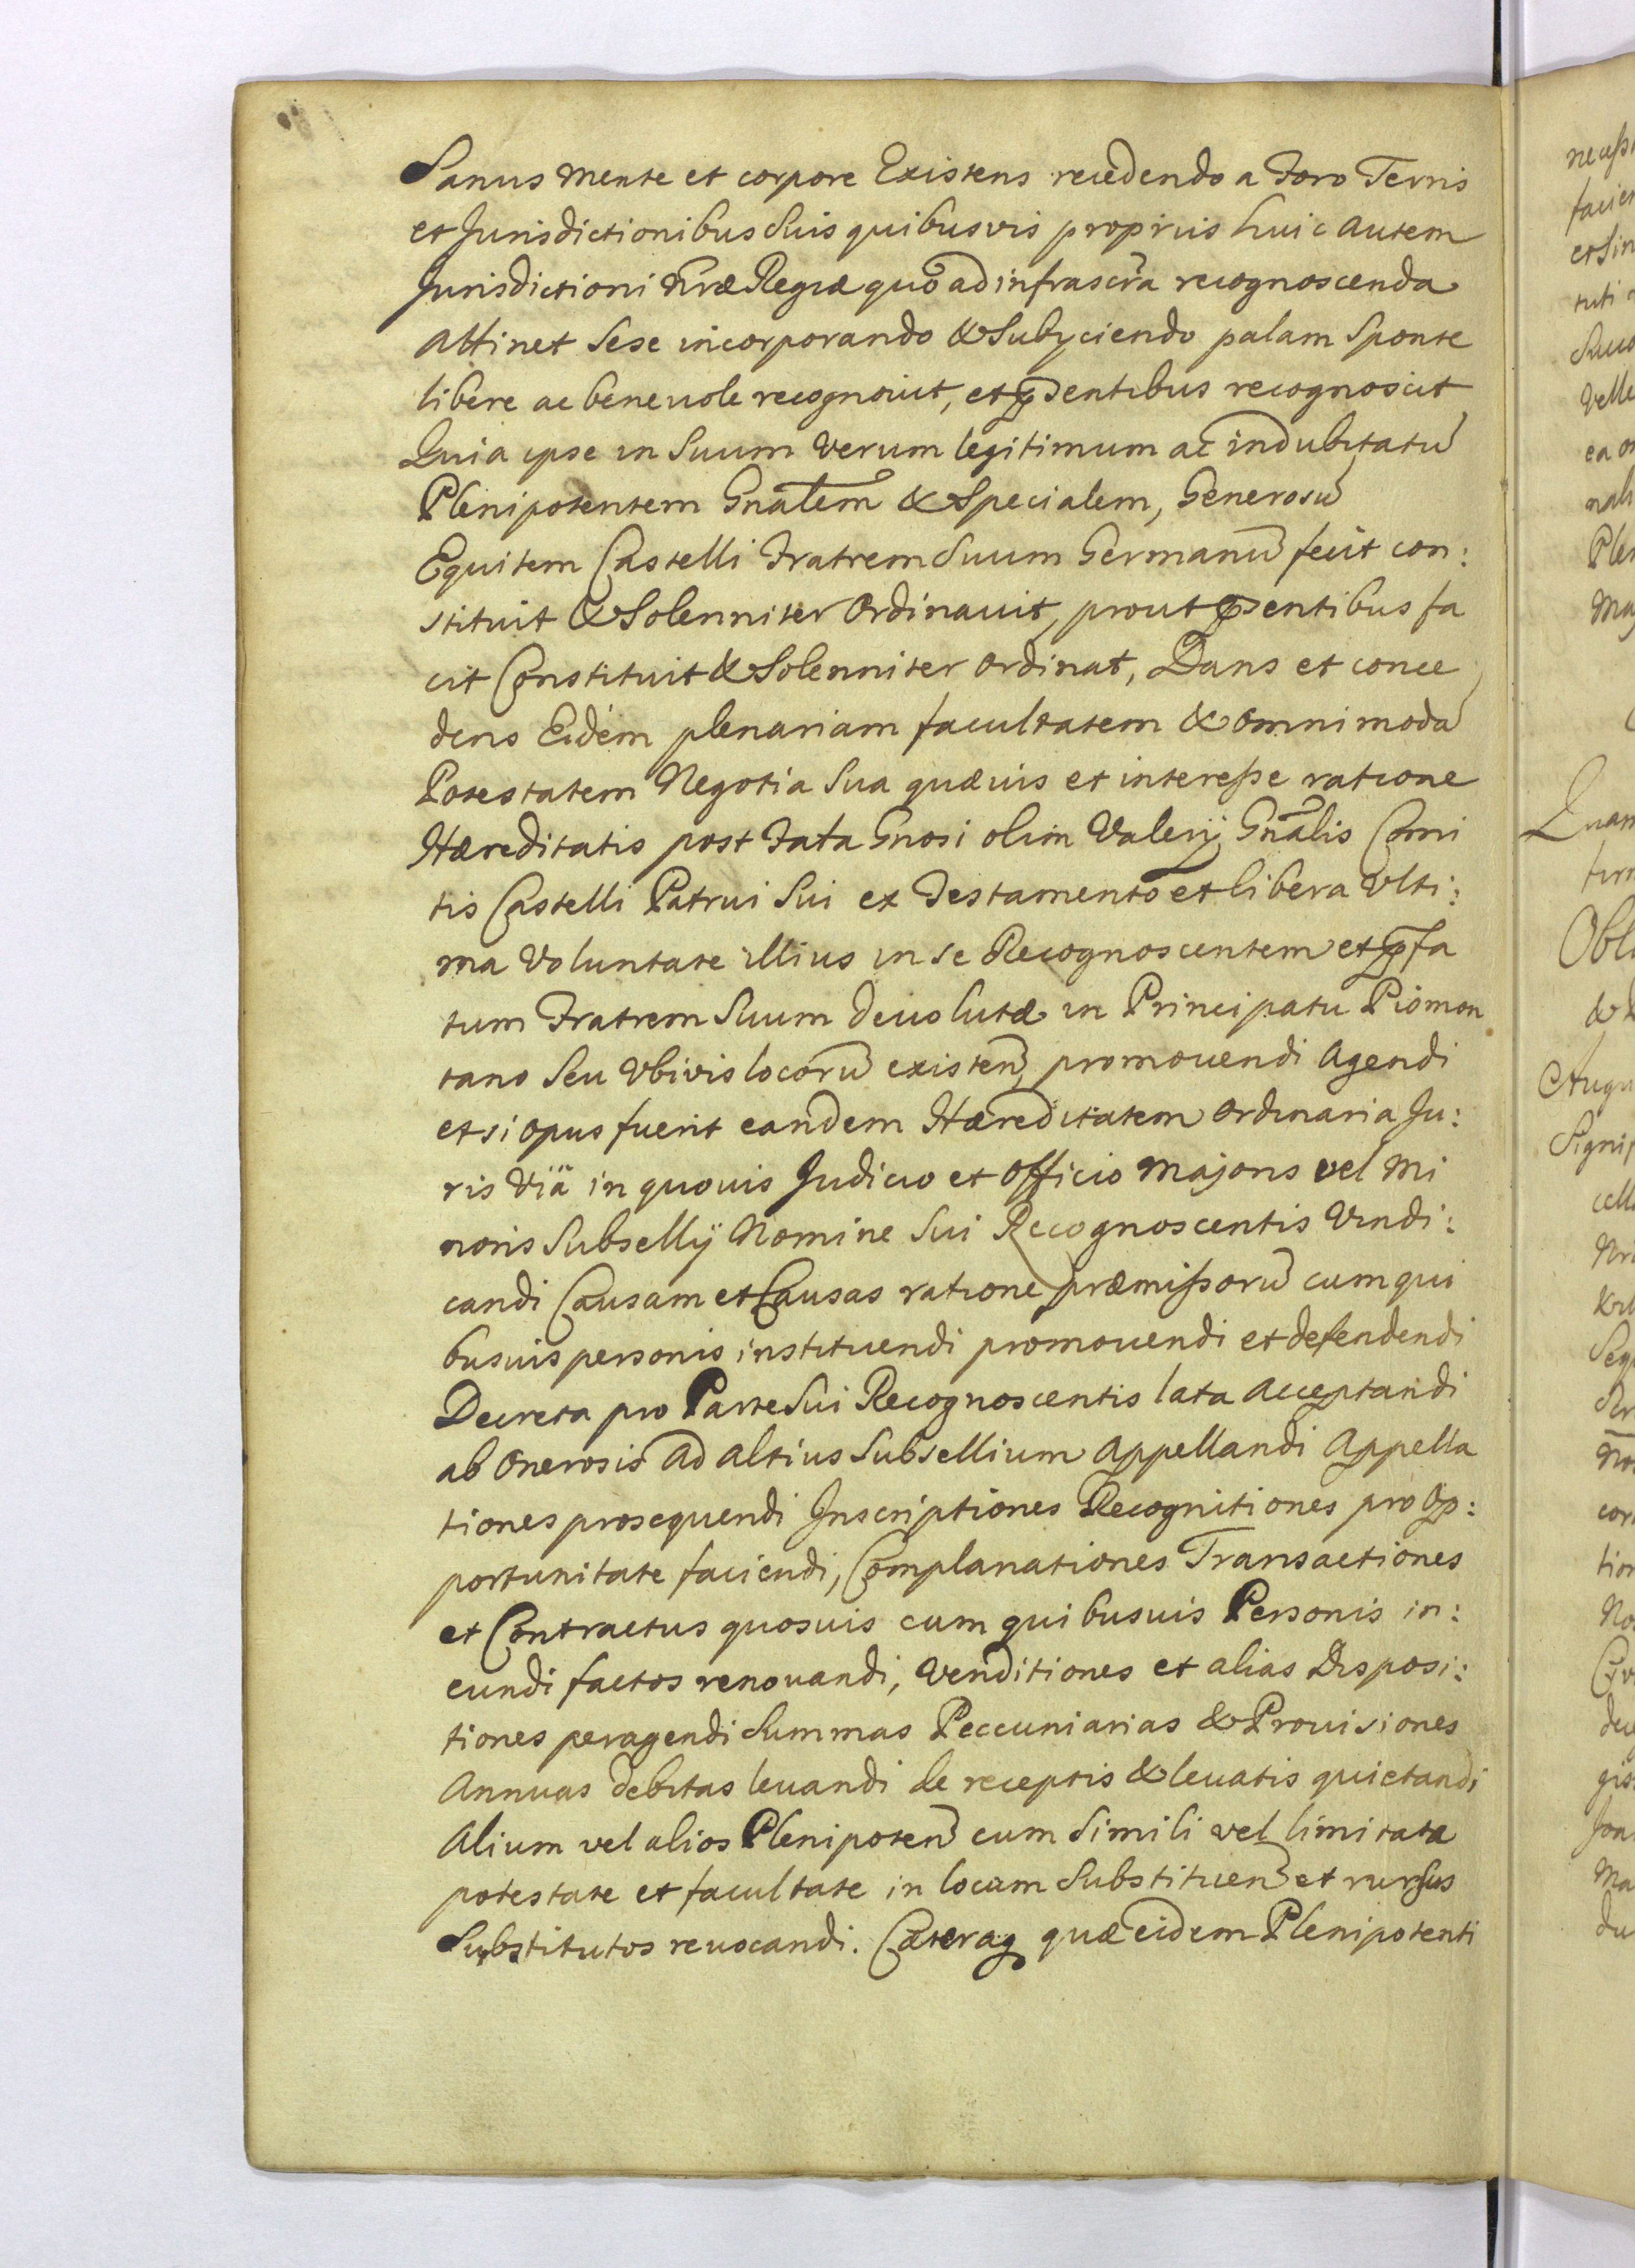 Sanus mente et corpore Existens recedendo a Foro Terris
et Jurisdictionibus Suis quibusvis proprijs huic autem
Jurisdictioni nr̃æ Regiæ quo ad infrascr̃a recognoscenda
Attinet Sese incorporando & Subyciendo palam Sponte
libere ac beneuole recognouit, et p̃sentibus recognoscit
Quia ipse in Suum verum legitimum ac indubitatũ
Plenipotentem Gnãlem & Specialem, Generosũ
Equitem Castelli Fratrem Suum Germanũ fecit con:
stituit & Solenniter Ordinauit, prout p̃sentibus fa
cit Constituit & Solenniter ordinat, Dans et conce
dens Eidem plenariam facultatem & omnimodã
Potestatem Negotia Sua quæuis et interesse ratione
Hæreditatis post Fata Gnosi olim Valerij Gnãlis Comi
tis Castelli Patrui Sui ex Testamento et libera Ulti:
ma Voluntate illius in se Recognoscentem et p̃fa
tum Fratrem Suum deuolutæ in Principatu Piemon
tano Seu Vbivis locorũ existeñ, promouendi Agendi
et si opus fuerit eandem Hæreditatem Ordinaria Ju:
ris viä in quouis Judicio et Officio Majoris vel Mi
noris Subsellÿ Nomine Sui Recognoscentis Vindi:
candi Causam et Causas ratione præmissorũ cum qui
busuis personis instituendi promouendi et defendendi
Decreta pro Parte Sui Recognoscentis lata Acceptandi
ab Onerosis ad Altius Subsellium Appellandi Appella
tiones prosequendi Inscriptiones Recognitiones pro Op:
portunitate faciendi, Complanationes Transactiones
et Contractus quosuis cum quibusuis Personis in:
eundi factos renouandi, Venditiones et alias Disposi:
tiones peragendi Summas Peccuniarias & Prouisiones
Annuas debitas leuandi de receptis & leuatis quietandi
Alium vel alios Plenipoteñ cum Simili vel limitata
potestate et facultate in locum Substitueñ et rursus
Substitutos reuocandi. Cæteraq quæ eidem Plenipotenti